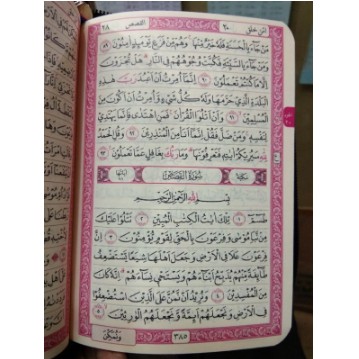 ٢٨ القصص ٢٠ امّن خلق
مَن جَآءَ بِالْحَسَنَةِ فَلَهُ خَيْرٌ مِّنْهَا وَهُم مِّن فَزَعٍ يَوْمَئِذٍ ءَامِنُونَ ٨٩
وَمَن جَآءَ بِالسَّيِّئَةِ فَكُبَّتْ وُجُوهُهُمْ فِي النَّارِ هَلْ تُجْزَوْنَ
إِلَّا مَا كُنتُمْ تَعْمَلُونَ ٩٠ إِنَّمَآ أُمِرْتُ أَنْ أَعْبُدَ رَبَّ هَٰذِهِ
الْبَلْدَةِ الَّذِي حَرَّمَهَا وَلَهُ كُلُّ شَيْءٍ وَأُمِرْتُ أَنْ أَكُونَ مِنَ
الْمُسْلِمِينَ ٩١ وَأَنْ أَتْلُوَ الْقُرْءَانَ فَمَنِ اهْتَدَىٰ فَإِنَّمَا يَهْتَدِي
لِنَفْسِهِ وَمَن ضَلَّ فَقُلْ إِنَّمَآ أَنَا مِنَ الْمُنذِرِينَ ٩٢ وَقُلِ الْحَمْدُ
لِلَّهِ سَيُرِيكُمْ ءَايَٰتِهِ فَتَعْرِفُونَهَا وَمَا رَبُّكَ بِغَٰفِلٍ عَمَّا تَعْمَلُونَ ٩٣
سُورَةُ الْقَصَصِ
بِسْمِ اللَّهِ الرَّحْمَٰنِ الرَّحِيمِ
طسٓمٓ ١ تِلْكَ ءَايَٰتُ الْكِتَٰبِ الْمُبِينِ ٢ نَتْلُوا عَلَيْكَ
مِن نَّبَإِ مُوسَىٰ وَفِرْعَوْنَ بِالْحَقِّ لِقَوْمٍ يُؤْمِنُونَ ٣ إِنَّ
فِرْعَوْنَ عَلَا فِي الْأَرْضِ وَجَعَلَ أَهْلَهَا شِيَعًا يَسْتَضْعِفُ
طَآئِفَةً مِّنْهُمْ يُذَبِّحُ أَبْنَآءَهُمْ وَيَسْتَحْيِي نِسَآءَهُمْ إِنَّهُ كَانَ
مِنَ الْمُفْسِدِينَ ٤ وَنُرِيدُ أَن نَّمُنَّ عَلَى الَّذِينَ اسْتُضْعِفُوا
فِي الْأَرْضِ وَنَجْعَلَهُمْ أَئِمَّةً وَنَجْعَلَهُمُ الْوَٰرِثِينَ ٥
٣٨٥ وَنُمَكِّنَ